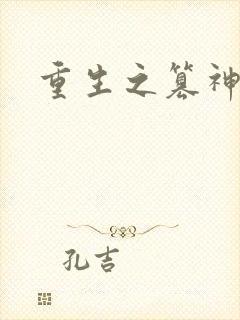 重生之篡神
孔吉